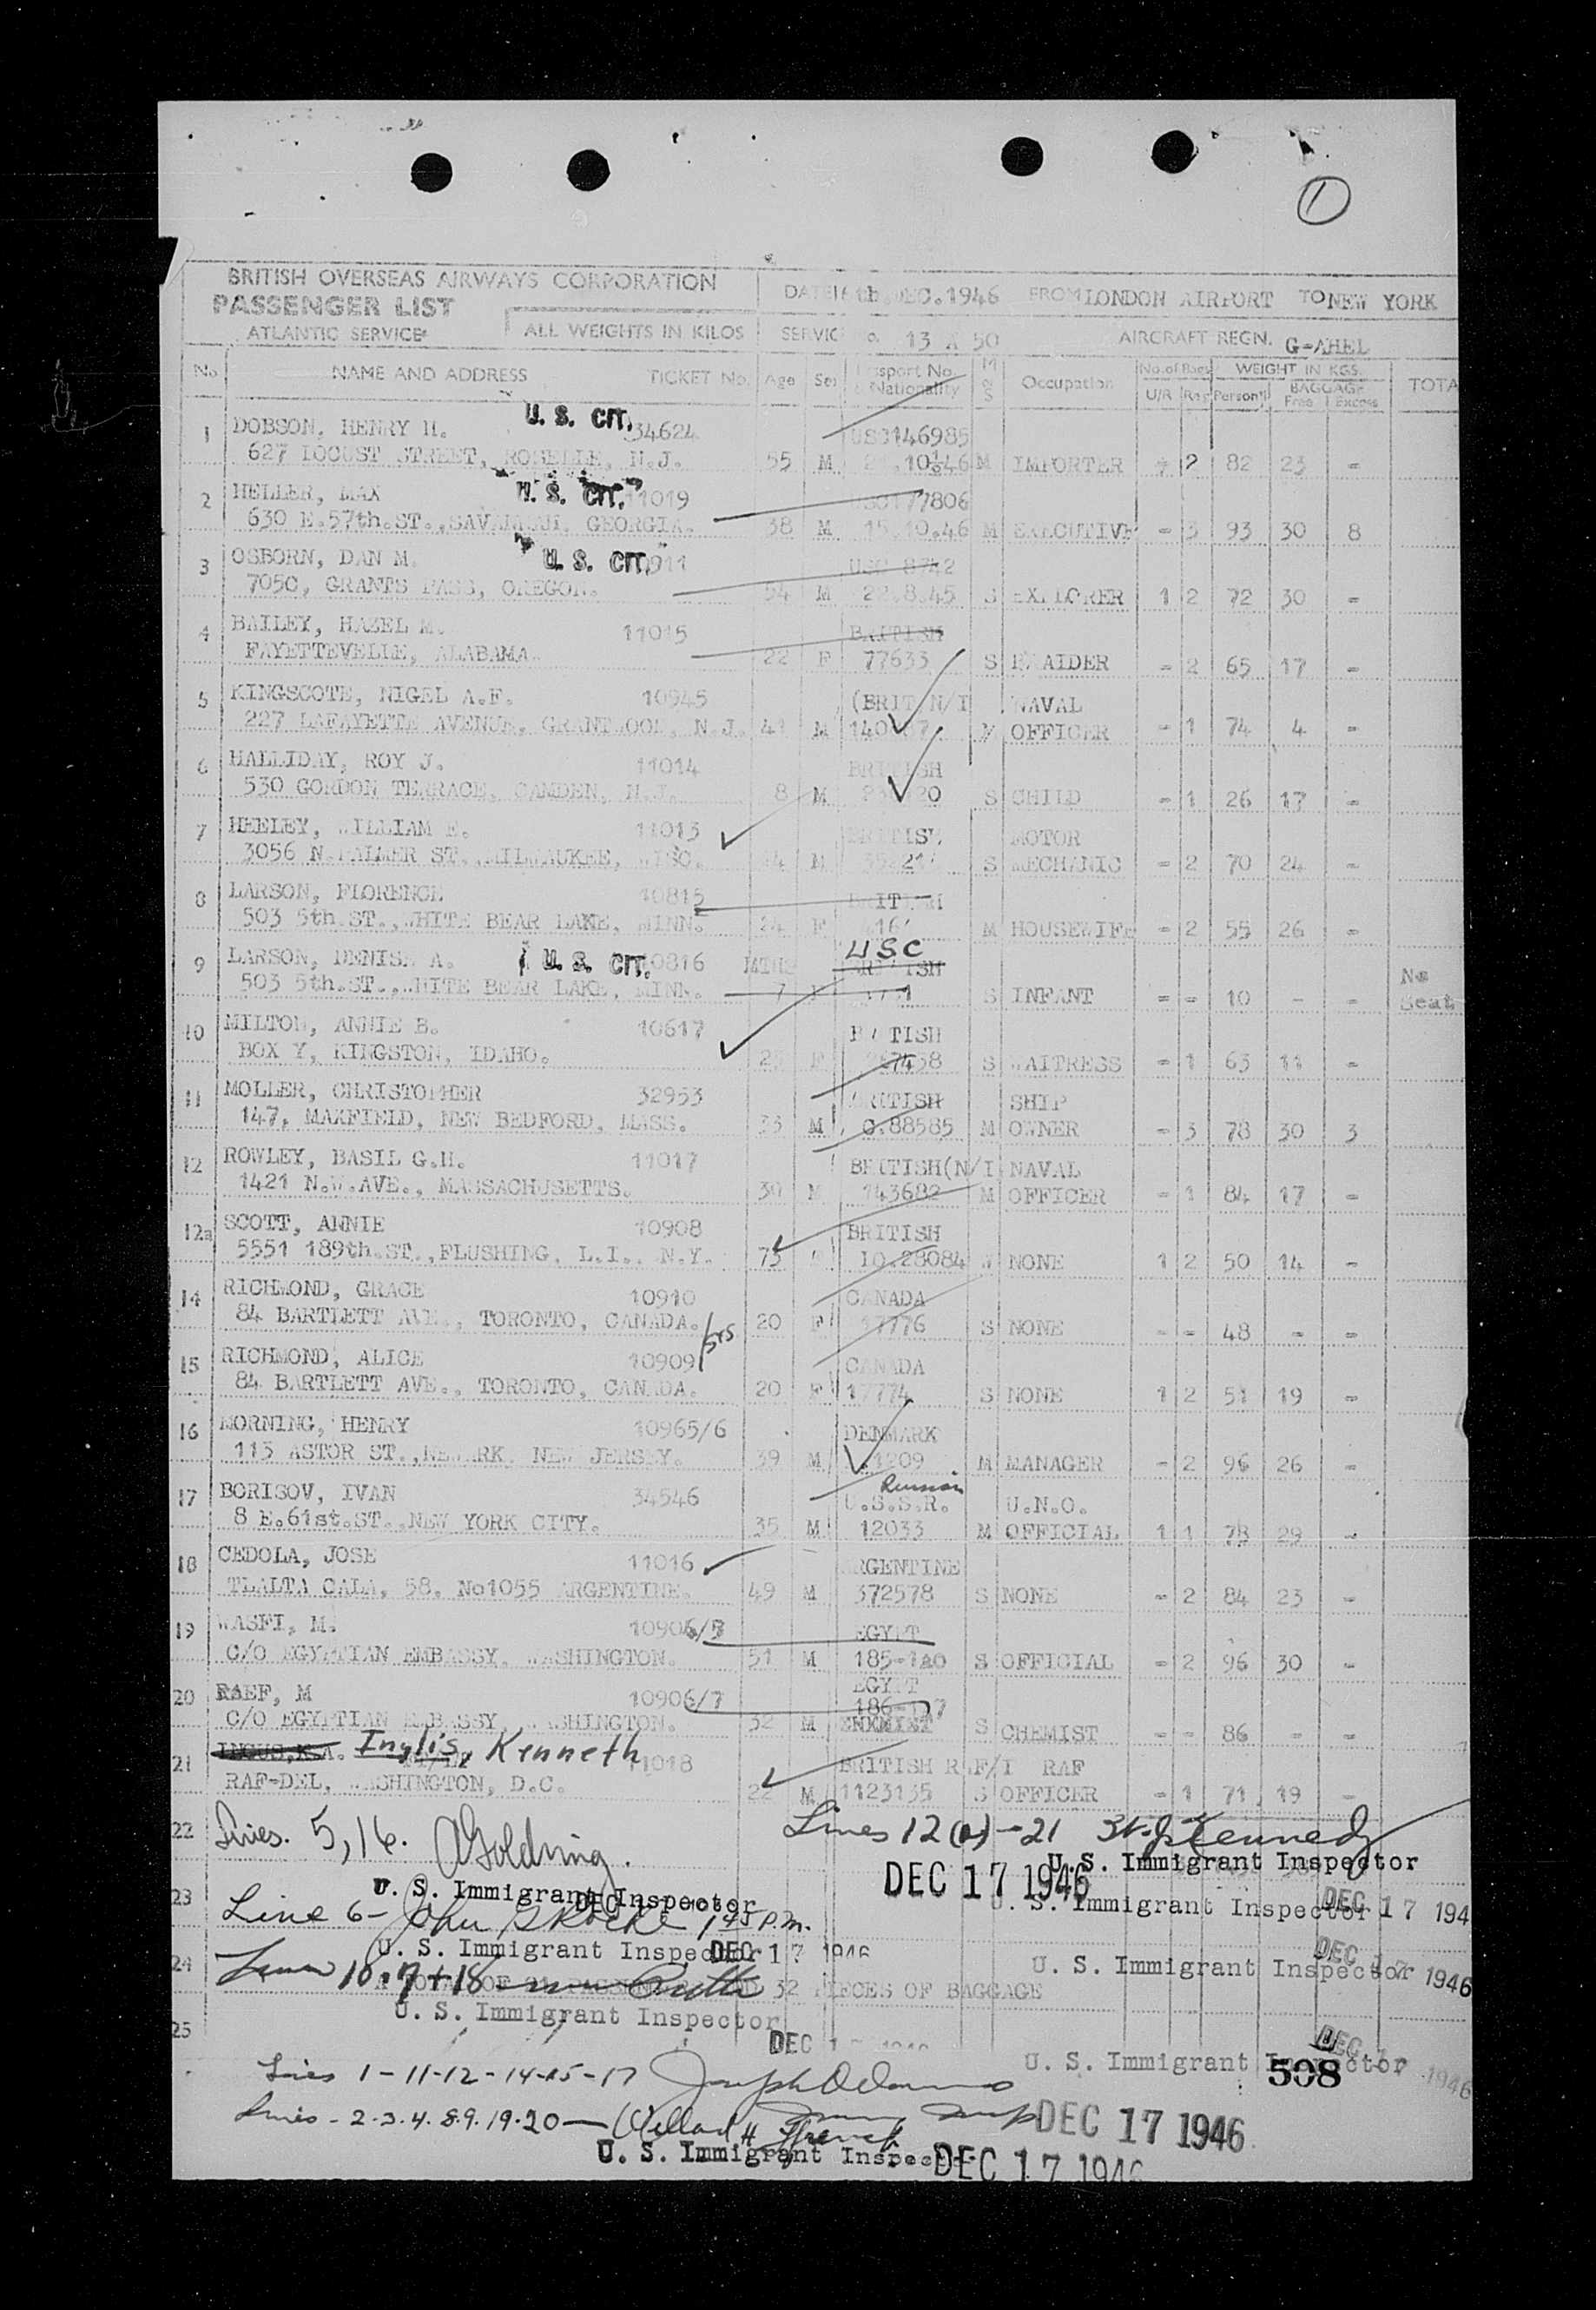 1
BRITISH OVERSEAS AIRWAYS CORPORATION
PASSENGER LIST
ATLANTIC SERVICE
ALL WEIGHTS IN KILOS
DEC.1946 FROM LONDON AIRPORT TO NEW YORK
13 A 50 AIRCRAFT REGN. G-AHEL
No NAME AND ADDRESS TICKET No. Age Sex Passport No. & Nationality M S Occupation No. of Bags U/R Reg WEIGHT IN KGS. Person'l BAGGAGE Free Excess TOTA
1 DOBSON, HENRY H. U. S. CIT. 34624 146985
627 LOCUST STREET, ROSELLE, N.J. 55 M M IMPORTER 2 82 23 -
2 HELLER, MAX U. S. CIT. 11019 77806
630 E.57th.ST., SAVANNAH, GEORGIA. 38 M 15.10.46 M EXECUTIVE - 3 93 30 8
3 OSBORN, DAN M. U. S. CIT. 911 USC 8742
7050, GRANTS PASS, OREGON. 54 M 22.8.45 S EXPLORER 1 2 72 30 -
4 BAILEY, HAZEL M. 11015 BRITISH
FAYETTEVELLE, ALABAMA. 22 F 77633 S BRAIDER - 2 65 17 -
5 KINGSCOTE, NIGEL A.F. 10945 (BRIT N/I NAVAL
227 LAFAYETTE AVENUE, N.J. 41 M M OFFICER - 1 74 4 -
6 HALLIDAY, ROY J. 11014 BRITISH
530 GORDON TERRACE, CAMDEN, N.J. 8 M S CHILD - 1 26 17 -
7 HEELEY, WILLIAM E. 11013 BRITISH MOTOR
3056 N.PALMER ST., MILWAUKEE, WISC. M S MECHANIC - 2 70 24 -
8 LARSON, FLORENCE 10815 BRITISH
503 5th.ST., WHITE BEAR LAKE, MINN. 24 F M HOUSEWIFE - 2 55 26 -
9 LARSON, DENISE A. U. S. CIT. 10816 MTHS USC BRITISH
503 5th.ST., WHITE BEAR LAKE, MINN. 7 F S INFANT - - 10 - - No Seat
10 MILTON, ANNIE B. 10617 BRITISH
BOX Y, KINGSTON, IDAHO. F S WAITRESS - 1 63 11 -
11 MOLLER, CHRISTOPHER 32953 BRITISH SHIP
147, MAXFIELD, NEW BEDFORD, MASS. 33 M 0.88585 M OWNER - 3 78 30 3
12 ROWLEY, BASIL G.H. 11017 BRITISH(N/I NAVAL
1421 N.W.AVE., MASSACHUSETTS. 30 M 143682 M OFFICER - 1 84 17 -
12a SCOTT, ANNIE 10908 BRITISH
5551 189th.ST., FLUSHING, L.I., N.Y. 73 10.28084 NONE 1 2 50 14 -
14 RICHMOND, GRACE 10910 CANADA
84 BARTLETT AVE., TORONTO, CANADA. 20 F 17776 S NONE - - 48 - -
15 RICHMOND, ALICE 10909 CANADA
84 BARTLETT AVE., TORONTO, CANADA. 20 F 17774 S NONE 1 2 51 19 -
16 MORNING, HENRY 10965/6 DENMARK
113 ASTOR ST., NEWARK, NEW JERSEY. 39 M 1209 M MANAGER - 2 96 26 -
17 BORISOV, IVAN 34546 Russian U.S.S.R. U.N.O.
8 E.61st.ST., NEW YORK CITY. 35 M 12033 M OFFICIAL 1 1 78 29 -
18 CEDOLA, JOSE 11016 ARGENTINE
TLALTA CALA, 58, No1055 ARGENTINE. 49 M 372578 S NONE - 2 84 23 -
19 WASFI, M. EGYPT
C/O EGYPTIAN EMBASSY, WASHINGTON. 51 M S OFFICIAL - 2 96 30 -
20 RAEF, M 10906/7 EGYPT
C/O EGYPTIAN EMBASSY, WASHINGTON. 32 M S CHEMIST - - 86 - -
21 Inglis, Kenneth 11018 BRITISH RAF/I RAF
RAF-DEL, WASHINGTON, D.C. 22 M 1123135 S OFFICER - 1 71 19 -
22 Lines. 5, 16. A Goldring. Lines 12(a)-21 Kennedy
U. S. Immigrant Inspector
DEC 17 1946
23 U. S. Immigrant Inspector U. S. Immigrant Inspector DEC 17 194
Line 6 - John 1 45 P.M.
U. S. Immigrant Inspector DEC 17 1946
24 U. S. Immigrant Inspector DEC 17 1946
Lines 10, 7 + 18 32 PIECES OF BAGGAGE
U. S. Immigrant Inspector
25 DEC
U. S. Immigrant Inspector DEC 1946
508
Lines 1-11-12-14-15-17 Joseph
DEC 17 1946
Lines - 2.3.4.8.9.19.20 - Willard H French
U. S. Immigrant Inspector DEC 17 1946